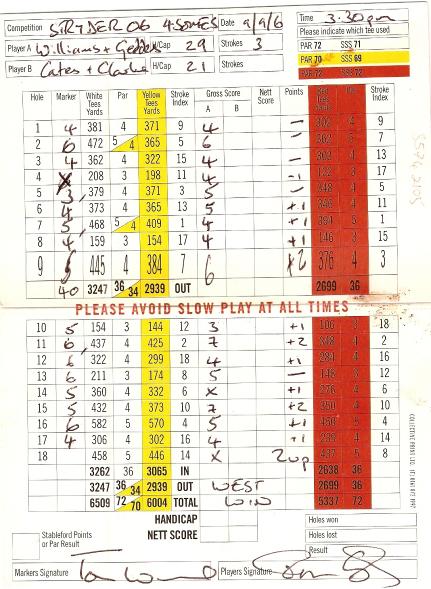 Competition STRYDER 06 4-SOMES Date 9/9/6 Time 3.30pm
Player A Williams + Geddes H/Cap 29 Strokes 3 Please indicate which tee used
Player B Cates + Clarke H/Cap 21 Strokes
PAR 72 SSS 71
PAR 70 SSS 69
PAR 72 SSS 72
Hole Marker White Tees Yards Par Yellow Tees Yards Stroke Index Gross Score A B Nett Score Points Red Tees Yards Par Stroke Index
1 4 381 4 371 9 4 – 302 4 9
2 6 472 5 4 365 5 6 –
3 4 362 4 322 15 4 – 302 4 13
4 X 208 3 198 11 4 -1 17
5 5 379 4 371 3 5 – 348 4 5
6 4 373 4 365 13 5 +1 346 4 11
7 5 468 5 4 409 1 4 +1 394 5 1
8 4 159 3 154 17 4 +1 146 3 15
9 5 445 4 384 7 6 +2 376 4 3
40 3247 36 34 2939 OUT 2699 36
PLEASE AVOID SLOW PLAY AT ALL TIMES
10 5 154 3 144 12 3 +1 106 3 18
11 6 437 4 425 2 7 +2 348 4 2
12 6 322 4 299 18 4 +1 284 4 16
13 6 211 3 174 8 5 – 148 3 12
14 5 360 4 332 6 X +1 276 4 6
15 5 432 4 373 10 7 +2 350 4 10
16 6 582 5 570 4 5 +1 450 5 4
17 4 306 4 302 16 4 +1 239 4 14
18 458 5 446 14 X 2up 437 5 8
3262 36 3065 IN 2638 36
3247 36 34 2939 OUT WEST 2699 36
6509 72 70 6004 TOTAL WIN 5337 72
HANDICAP
NETT SCORE
Stableford Points or Par Result
Holes won
Holes lost
Result
Markers Signature Players Signature